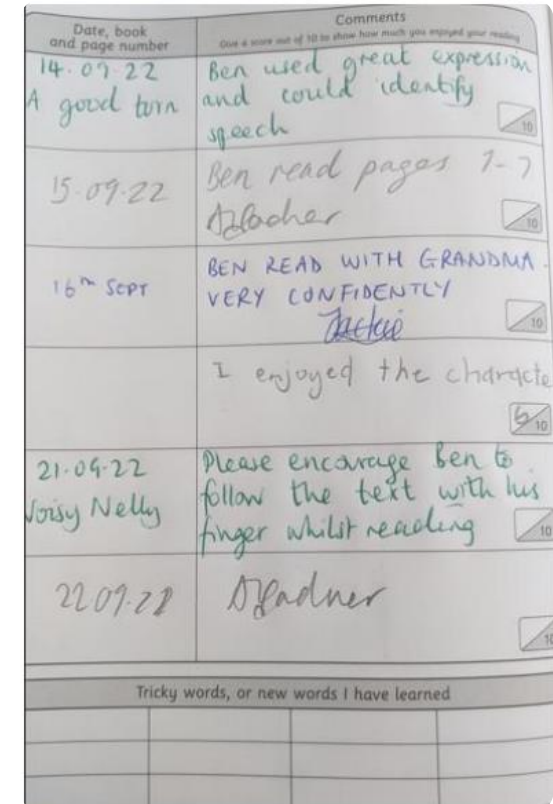 Date, book
and page number
Comments
Give a score out of 10 to show how much you enjoyed your reading
14.09.22
A good turn
Ben used great expression
and could identify
speech
10
15.09.22
Ben read pages 1-7
10
16th SEPT
BEN READ WITH GRANDMA
VERY CONFIDENTLY
Jackie
10
I enjoyed the characte
10
21.09.22
Noisy Nelly
Please encourage Ben to
follow the text with his
finger whilst reading
10
22.09.22
10
Tricky words, or new words I have learned